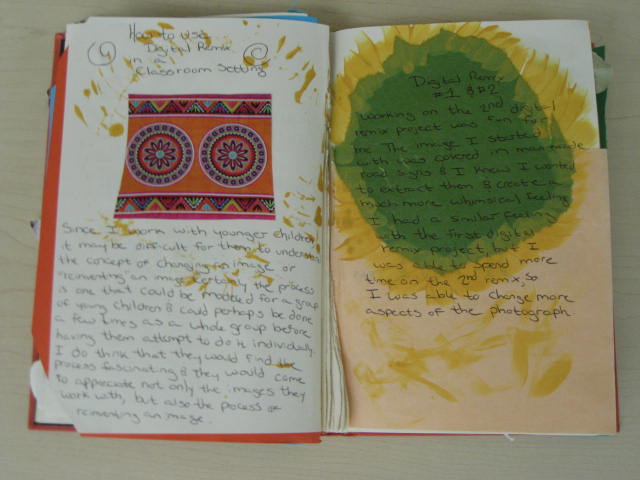 How to Use
Digital Remix
in a
Classroom Setting
Since I work with younger children
it may be difficult for them to understand
the concept of changing an image or
"reinventing" an image. Certainly the process
is one that could be modeled for a group
of young children & could perhaps be done
a few times as a whole group before
having them attempt to do it individually.
I do think that they would find the
process fascinating & they would come
to appreciate not only the images they
work with, but also the process of
reinventing an image.
Digital Remix
#1 & #2
Working on the 2nd digital
remix project was fun for
me. The image I started
with was covered in man made
road signs & I knew I wanted
to extract them & create a
much more whimsical feeling
I had a similar feeling
with the first digital
remix project, but I
was able to spend more
time on the 2nd remix, so
I was able to change more
aspects of the photograph.